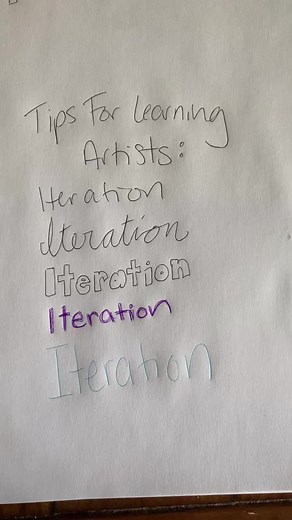 Tips For Learning
Artists:
Iteration
Iteration
Iteration
Iteration
Iteration